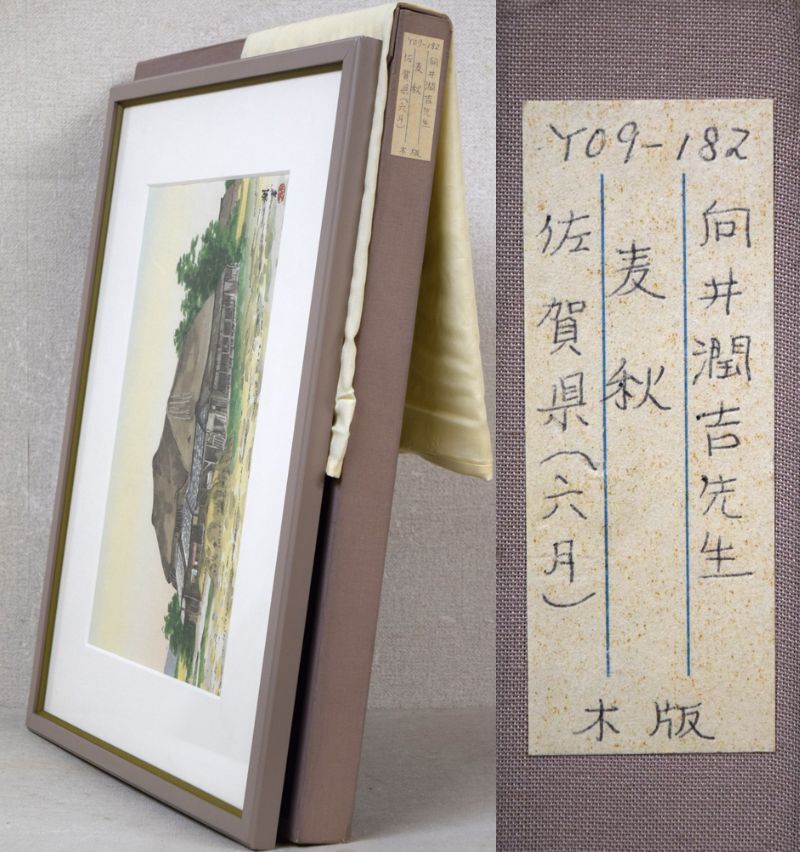 Y09-182
向井潤吉先生
麦秋
佐賀県(六月)
木版
Y09-182
向井潤吉先生
麦秋
佐賀県(六月)
木版